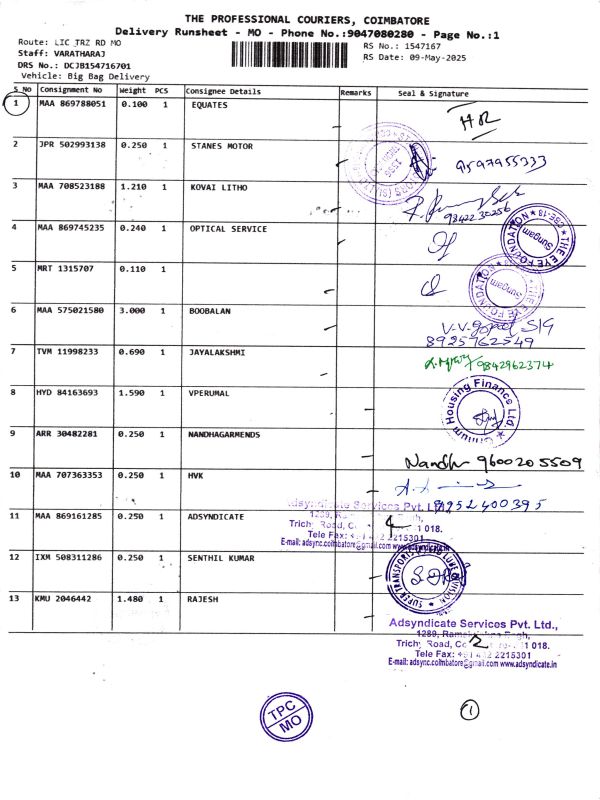 THE PROFESSIONAL COURIERS, COIMBATORE
Delivery Runsheet - MO - Phone No.:9047080280 - Page No.:1
Route: LIC_TRZ RD MO
Staff: VARATHARAJ
DRS No.: DCJB154716701
Vehicle: Big Bag Delivery
RS No.: 1547167
RS Date: 09-May-2025
S No Consignment No Weight PCS Consignee Details Remarks Seal & Signature
1 MAA 869788051 0.100 1 EQUATES
HR
2 JPR 502993138 0.250 1 STANES MOTOR
9597955333
3 MAA 708523188 1.210 1 KOVAI LITHO
9842230256
4 MAA 869745235 0.240 1 OPTICAL SERVICE
THE EYE FOUNDATION
Sungam
CBE-18
5 MRT 1315707 0.110 1
THE EYE FOUNDATION
Sungam
6 MAA 575021580 3.000 1 BOOBALAN
8925762549
7 TVM 11998233 0.690 1 JAYALAKSHMI
9842962374
8 HYD 84163693 1.590 1 VPERUMAL
Housing Finance Ltd.
9 ARR 30482281 0.250 1 NANDHAGARMENDS
Nandhu 9600205509
10 MAA 707363353 0.250 1 HVK
8952400395
11 MAA 869161285 0.250 1 ADSYNDICATE
Adsyndicate Services Pvt. Ltd.,
4
12 IXM 508311286 0.250 1 SENTHIL KUMAR
13 KMU 2046442 1.480 1 RAJESH
Adsyndicate Services Pvt. Ltd.,
2
Tele Fax: 2215301
E-mail: adsync.coimbatore@gmail.com www.adsyndicate.in
TPC
MO
1